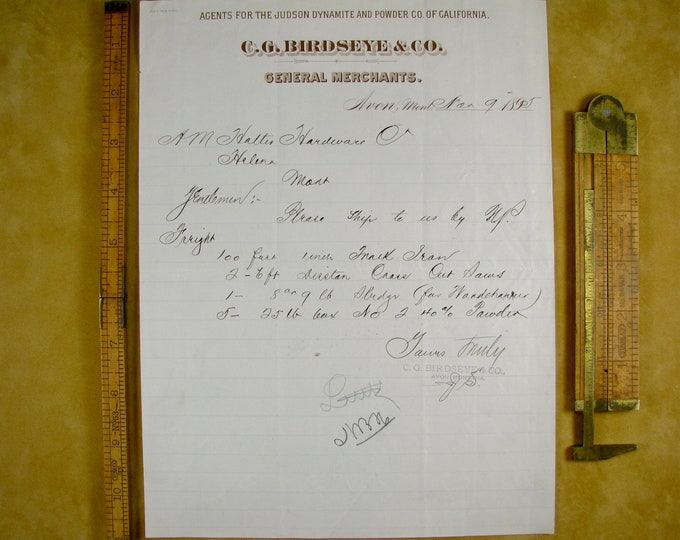 AGENTS FOR THE JUDSON DYNAMITE AND POWDER CO. OF CALIFORNIA.
C.G. BIRDSEYE & CO.
GENERAL MERCHANTS.
Avon, Mont Nov 9" 1895
A M Holter Hardware Co
Helena
Mont
Gentlemen :-
Please ship to us by NP.
Freight
100 feet 1 inch Track Iron
2 - 6 ft Disston Cross Cut Saws
1 - 8 or 9 lb Sledge (for
5 - 25 lb box No 2 40% Powder
Yours Truly
C. G. BIRDSEYE & CO.,
AVON, MONTANA.